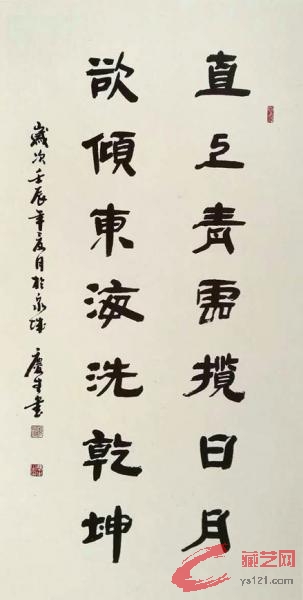 直上青雲攬日月
欲傾東海洗乾坤
歲次壬辰年夏月於泉城 慶生書
藏艺网
ys121.com